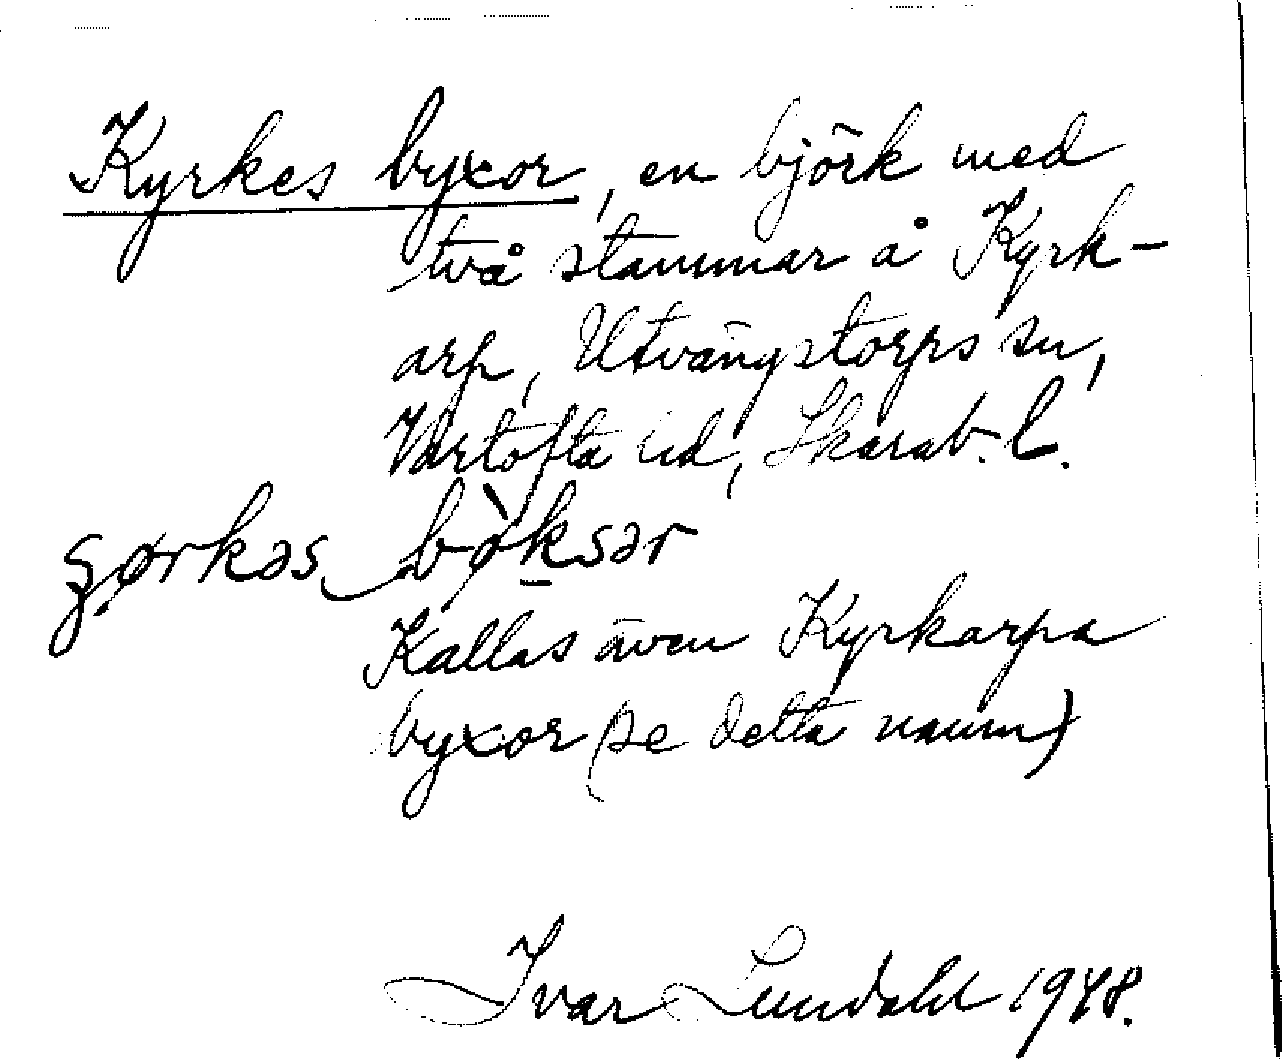 Kyrkes byxor, en björk med
två stammar å Kyrk-
arp, Utvängstorps sn,
Vartofta hd, Skarab. l.
ȿørkəs bø̀ksər
Kallas även Kyrkarpa
byxor (se detta namn)
Ivar Lundahl 1948.